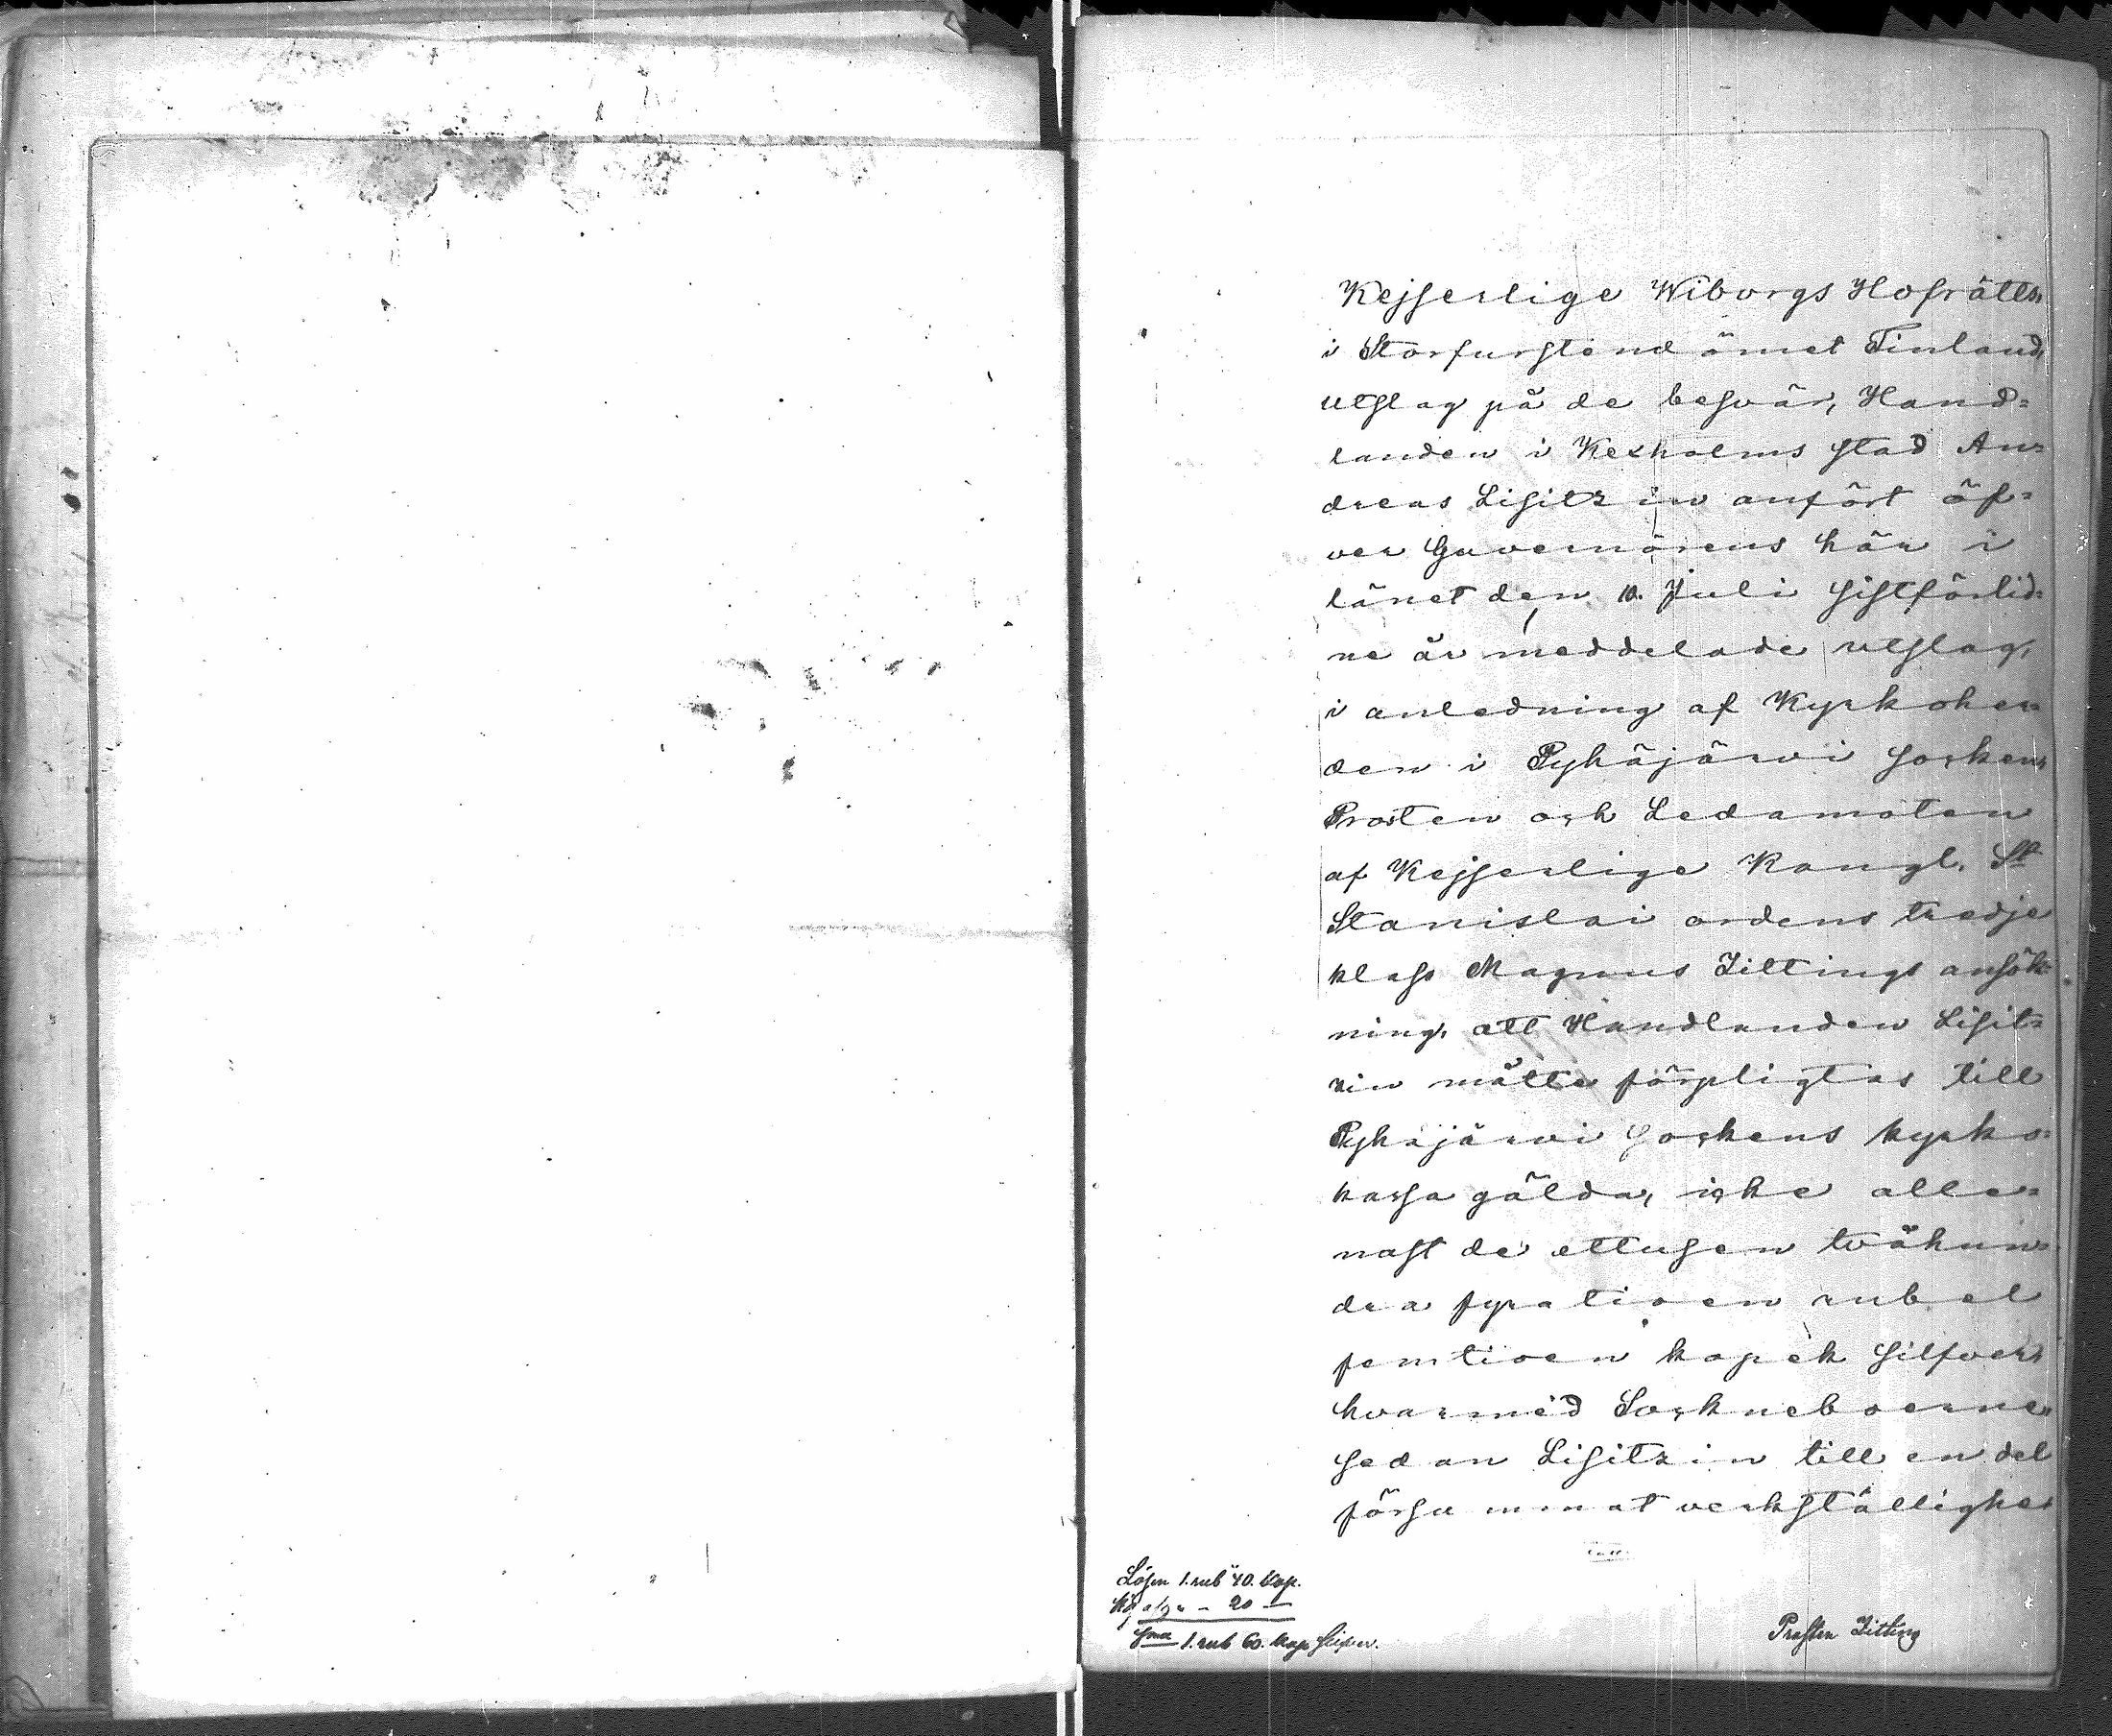 Kejserlige Wiborgs Hofrätts
i Storfurstendömet Finland,
utslag på de besvär, Hand=
landen i Kexholms stad An=
dreas Lisitzin anfört öf=
ver Guvernörens här i
länet den 10. Juli sistförlid=
ne år meddelade utslag,
i anledning af Kyrkoher=
den i Pyhäjärvi Sockens
Prosten och Ledamoten
af Kejserlige Kongl. St
Stanislai ordens tredje
klass Magnus Zittings ansök=
ning, att Handlanden Lisit=
zin måtte förpligtas till
Pyhäjärvi Sockens kyrko=
kassa gälda, icke alle=
nast de ettusen tvåhun=
dra fyratioen rubel
femtioen kopek silfver,
hvarmed Sockneboerne,
sedan Lisitzin till en del
försummat verkställighe=
Lösen 1. rub 40. kop.
20
Sma 1. rub 60. kop silfver.
Prosten Zitting